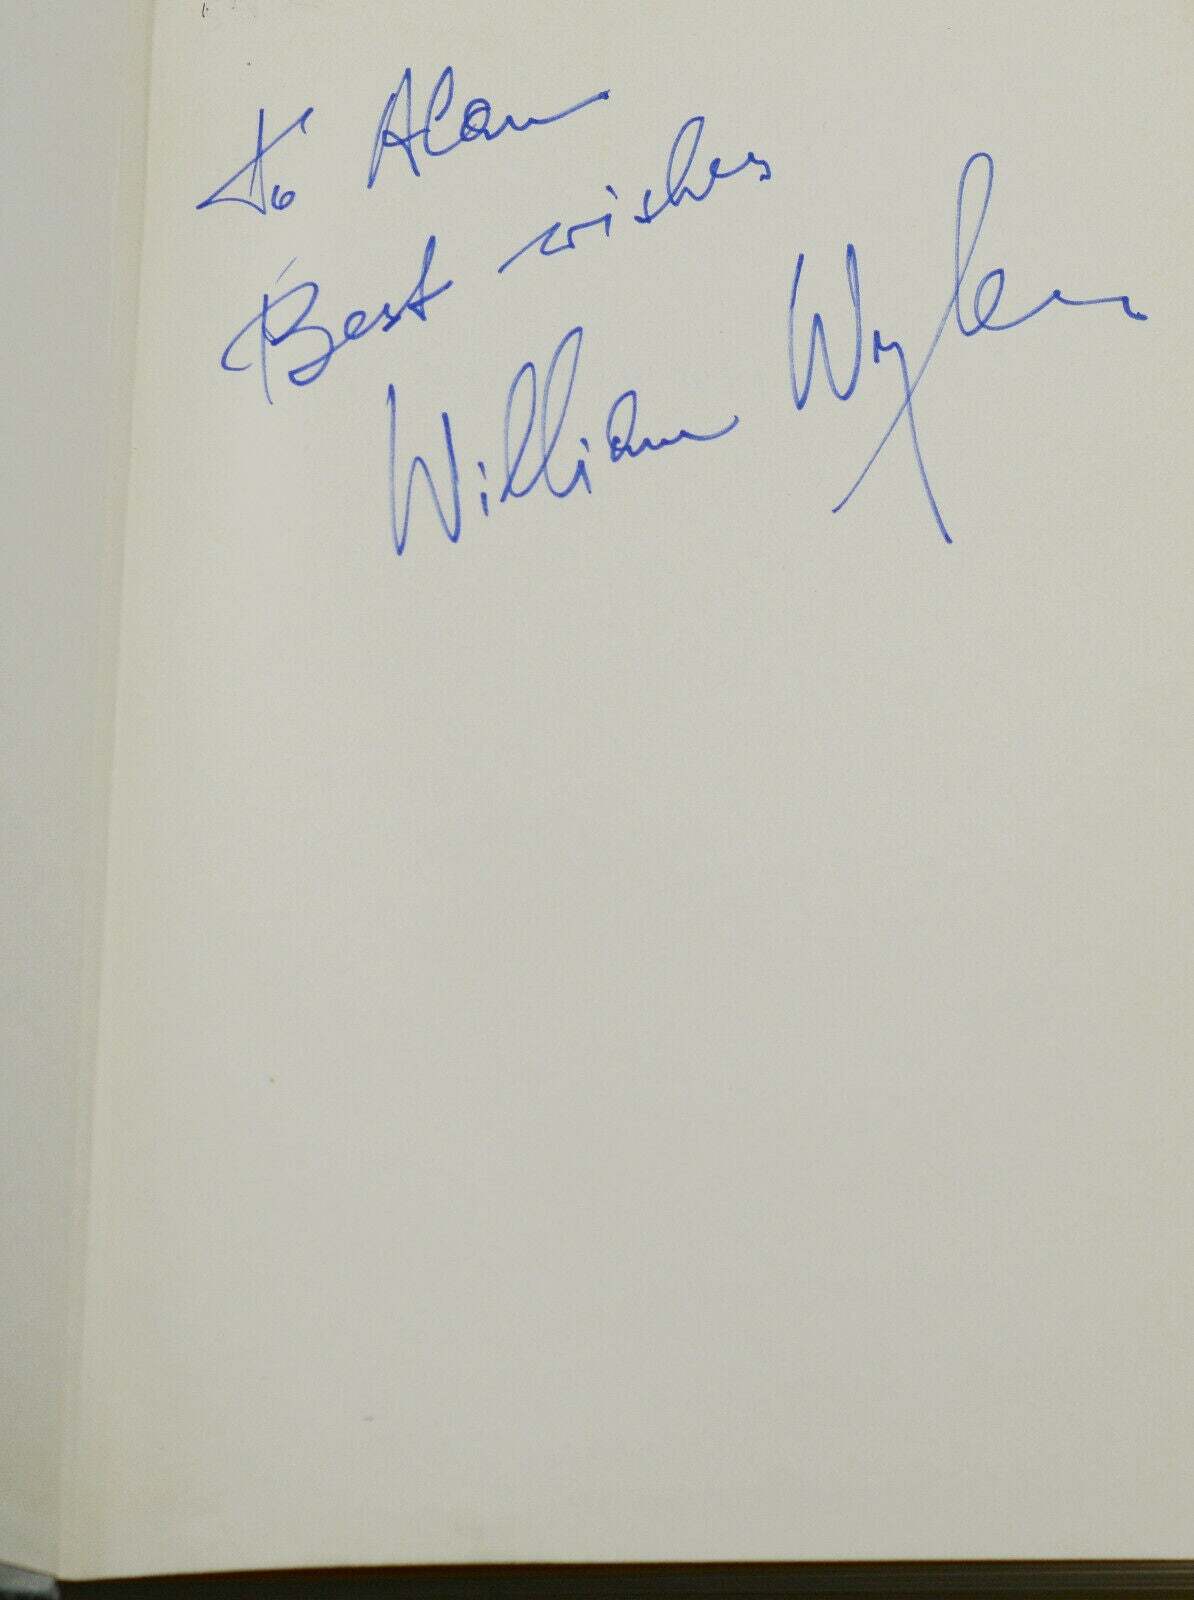 To Alan
Best wishes
William Wyler